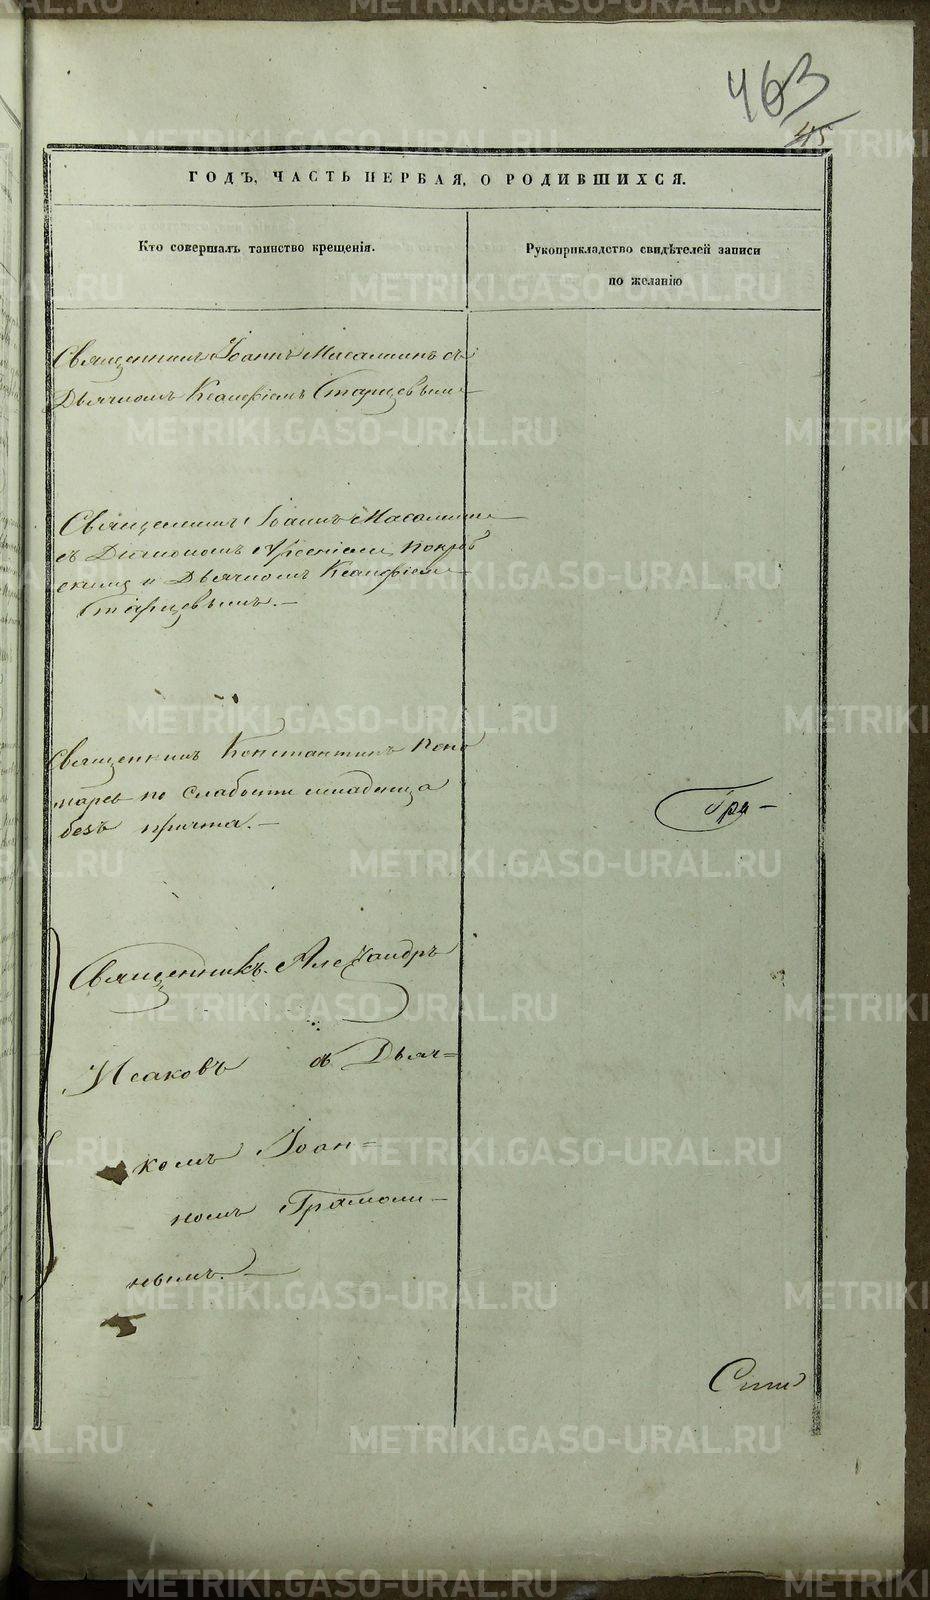 463
45
ГОДЪ, ЧАСТЬ ПЕРВАЯ, О РОДИВШИХСЯ.
Кто совершалъ таинство крещенія.
Рукоприкладство свидѣтелей записи
по желанію
Священникъ Іоаннъ Масалкинъ съ
Дьячкомъ Ксанфіемъ Старцевымъ
Священникъ Іоаннъ
съ Діакономъ Арсеніемъ Покров
скимъ и Дьячкомъ Ксанфіем
Старцевымъ.—
Священникъ Константинъ Поно
марев по слабости младенца
безъ причта.—
Гра—
Священникъ Александръ
Исаковъ съ Дьяч=
комъ Іоан=
номъ Грамоли—
нымъ.—
METRIKI.GASO-URAL.RU